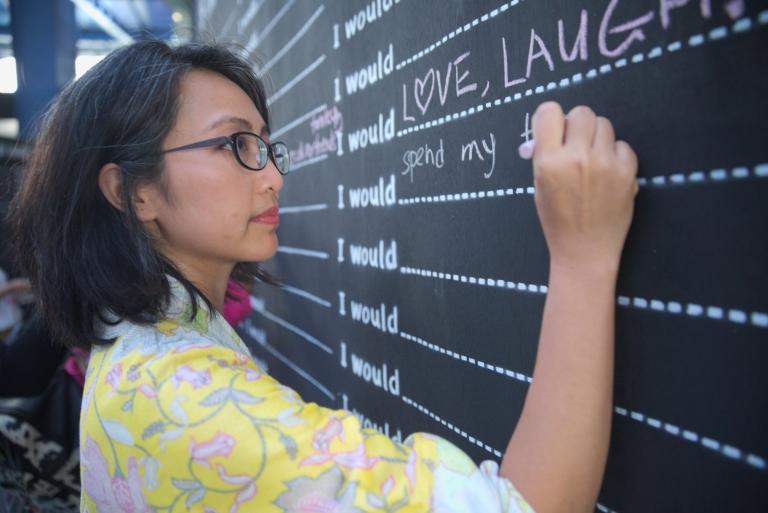 I would
I would
I would LOVE, LAUGH
I would spend my t
I would
I would
I would
I would